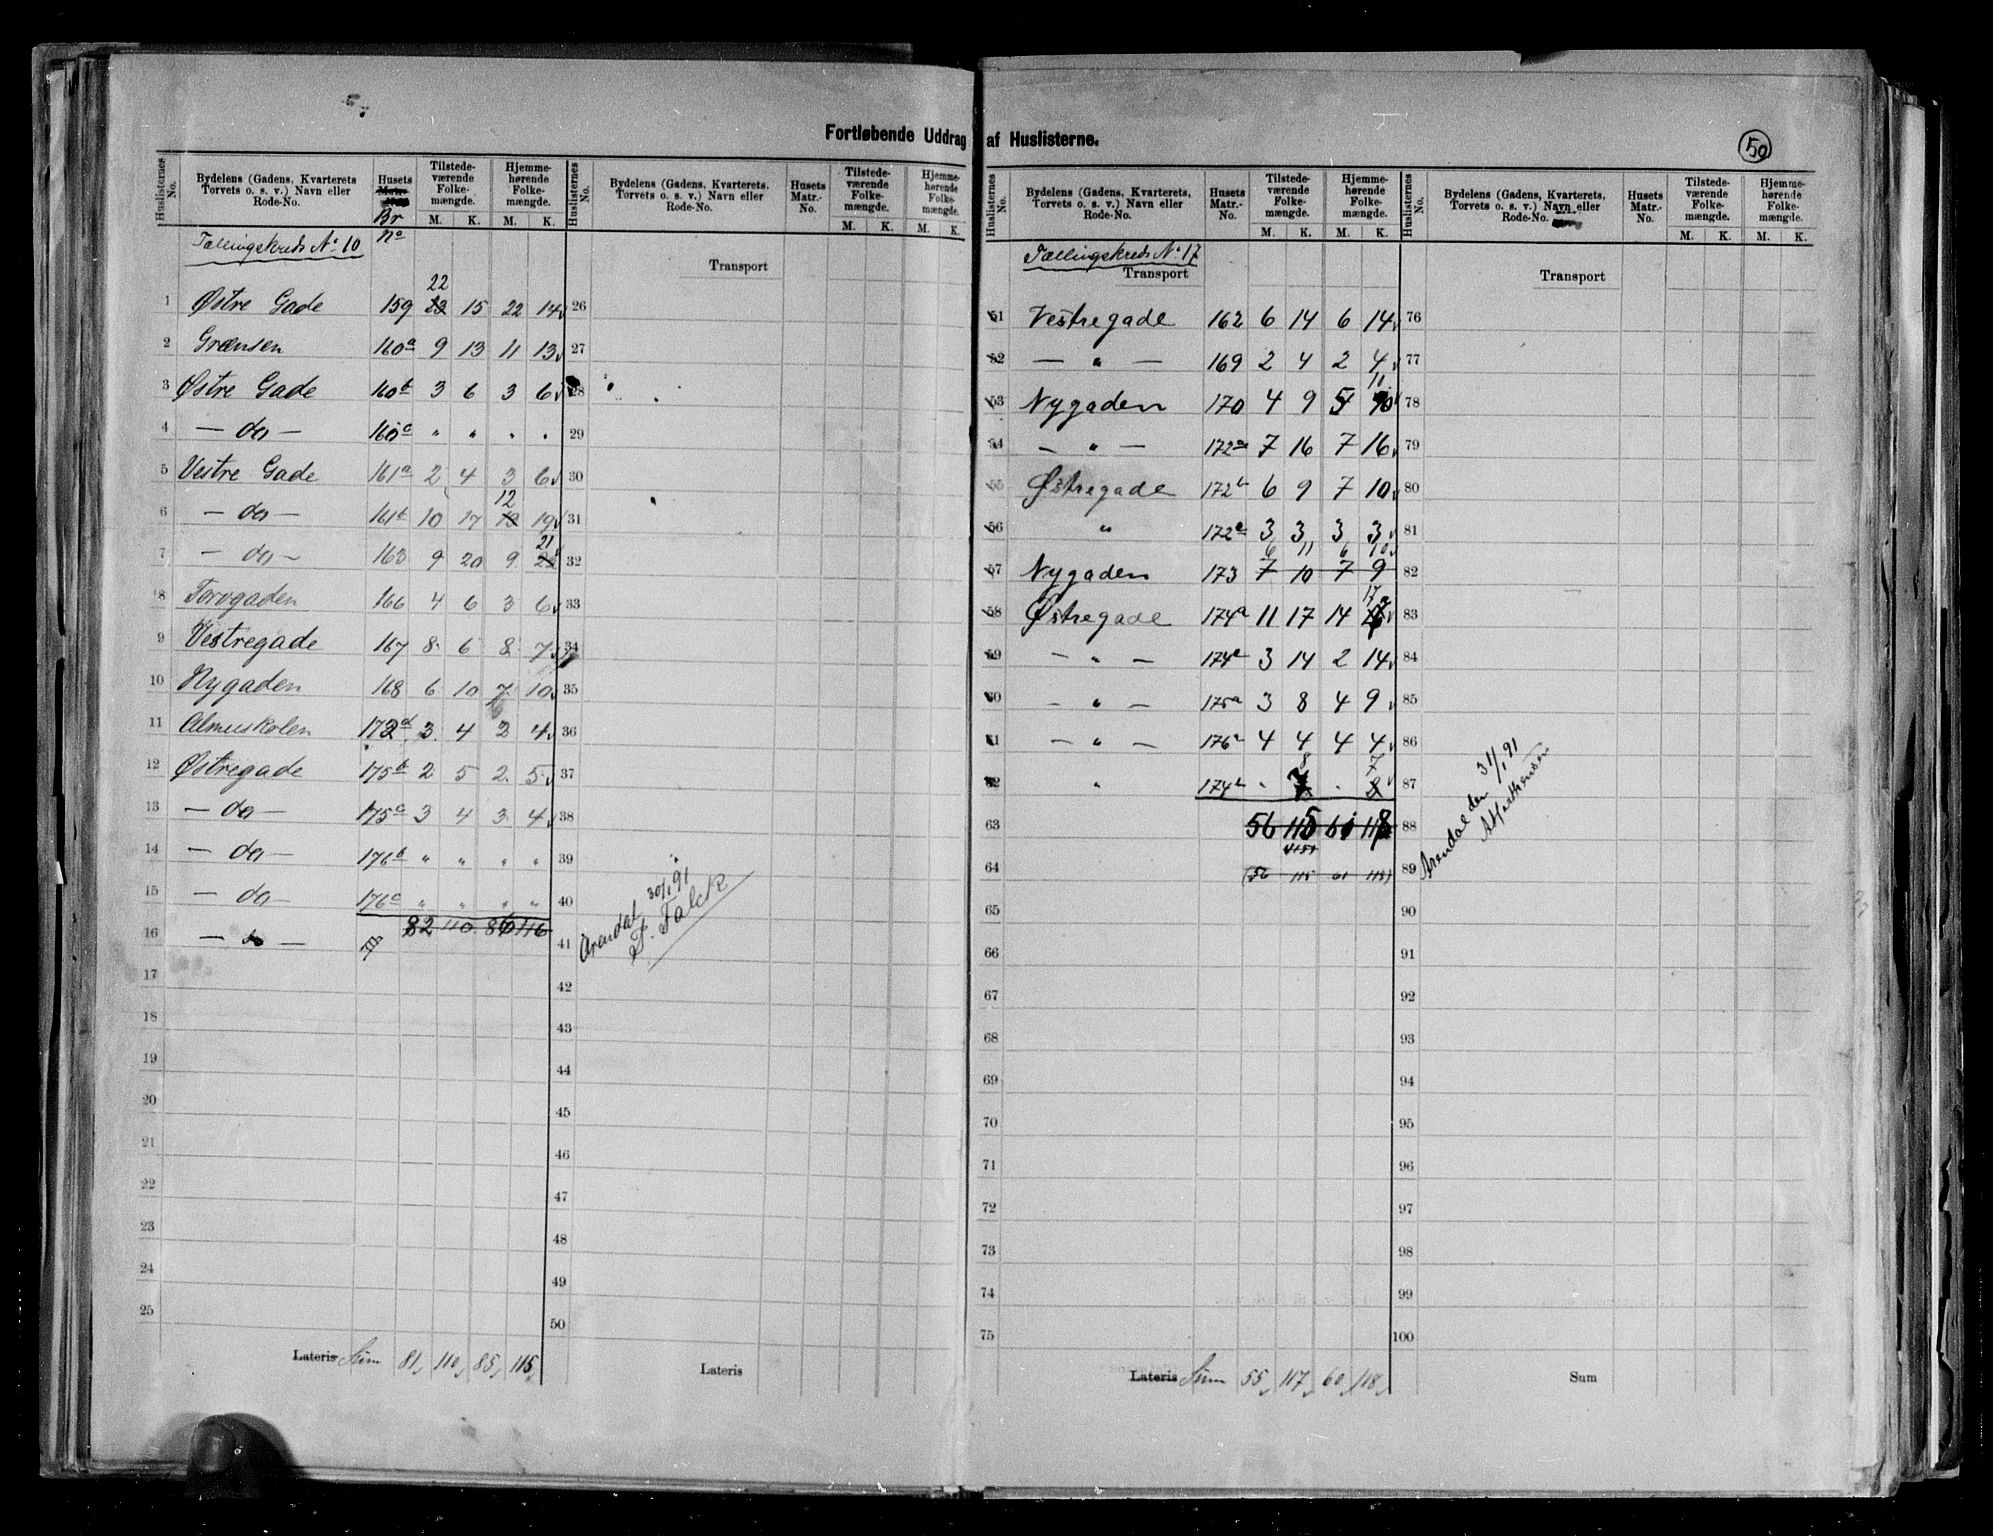 Fortløbende Uddrag af Huslisterne.
50
Huslisternes No. Bydelens (Gadens, Kvarterets Torvets o. s. v.) Navn eller Rode-No. Husets Matr.-No. Br no Tilstedeværende Folkemængde. M. K. Hjemmehørende Folkemængde. M. K.
Tællingskreds No 10
1 Østre Gade 159 22 15 22 14
2 Grænsen 160a 9 13 11 13
3 Østre Gade 160b 3 6 3 6
4 — do — 160c " " " "
5 Vestre Gade 161a 2 4 3 6
6 — do — 161b 10 17 12 19
7 — do — 163 9 20 9 21
8 Torvgaden 166 4 6 3 6
9 Vestregade 167 8 6 8 7
10 Nygaden 168 6 10 7 10
11 Almueskolen 172d 3 4 2 4
12 Østregade 175b 2 5 2 5
13 — do — 175c 3 4 3 4
14 — do — 176b " " " "
15 — do — 176c " " " "
82 110 86 116
16 — do —
17
18
19
20
21
22
23
24
25
Lateris Sum 81, 110, 85, 115,
Huslisternes No. Bydelens (Gadens, Kvarterets, Torvets o. s. v.) Navn eller Rode-No. Husets Matr.-No. Tilstedeværende Folkemængde. M. K. Hjemmehørende Folkemængde. M. K.
Transport
26
27
28
29
30
31
32
33
34
35
36
37
38
39
40
41
Arendal 30/1 91
F. Falck
42
43
44
45
46
47
48
49
50
Lateris
Huslisternes No. Bydelens (Gadens, Kvarterets, Torvets o. s. v.) Navn eller Rode-No. Husets Matr.-No. Tilstedeværende Folkemængde. M. K. Hjemmehørende Folkemængde. M. K.
Tællingskreds No 17
Transport
51 Vestregade 162 6 14 6 14
52 — " — 169 2 4 2 4
53 Nygaden 170 4 9 5 10
54 — " — 172a 7 16 7 16
55 Østregade 172b 6 9 7 10
56 " 172c 3 3 3 3
6 11 6 10
57 Nygaden 173 7 10 7 9
58 Østregade 174a 11 17 14 17
59 — " — 174c 3 14 2 14
60 — " — 175a 3 8 4 9
61 — " — 176a 4 4 4 4
62 " 174b . 8 . 7
63 56 115 61 118
64 (56 115 61 118)
65
66
67
68
69
70
71
72
73
74
75
Lateris Sum 55, 117, 60, 118,
Huslisternes No. Bydelens (Gadens, Kvarterets, Torvets o. s. v.) Navn eller Rode-No. Husets Matr.-No. Tilstedeværende Folkemængde. M. K. Hjemmehørende Folkemængde. M. K.
Transport
76
77
78
79
80
81
82
83
84
85
86
87
88
89
Arendal den 31/1 91
90
91
92
93
94
95
96
97
98
99
100
Sum